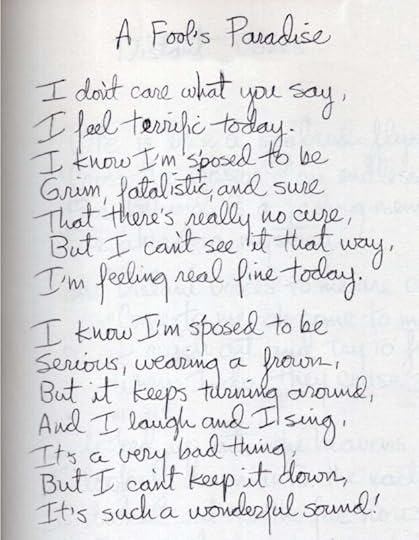 A Fool's Paradise
I don't care what you say,
I feel terrific today.
I know I'm 'sposed to be
Grim, fatalistic, and sure
That there's really no cure,
But I can't see it that way,
I'm feeling real fine today.
I know I'm s'posed to be
Serious, wearing a frown,
But it keeps turning around,
And I laugh and I sing,
It's a very bad thing
But I can't keep it down,
It's such a wonderful sound!